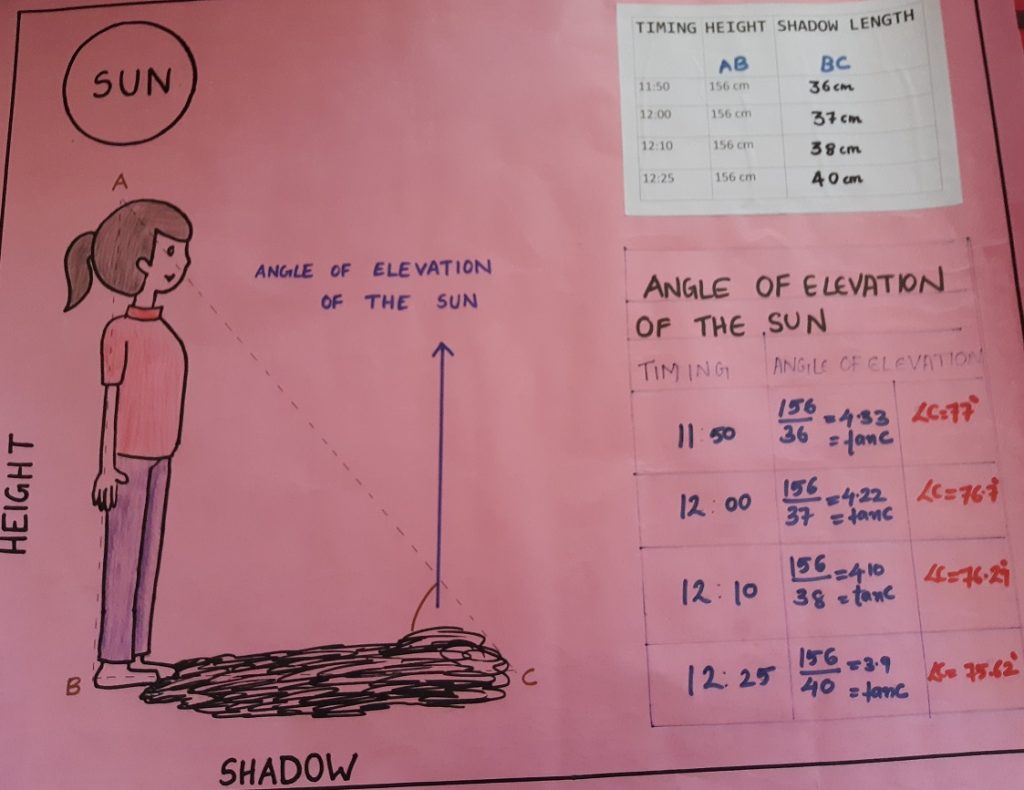 SUN
TIMING HEIGHT SHADOW LENGTH
AB BC
11:50 156 cm 36 cm
12:00 156 cm 37 cm
12:10 156 cm 38 cm
12:25 156 cm 40 cm
A
ANGLE OF ELEVATION
OF THE SUN
HEIGHT
B
C
SHADOW
ANGLE OF ELEVATION
OF THE SUN
TIMING ANGLE OF ELEVATION
11:50 156/36 = 4.33 = tanC ∠C=77°
12:00 156/37 = 4.22 = tanC ∠C=76.7°
12:10 156/38 = 4.10 = tanC ∠C=76.29°
12:25 156/40 = 3.9 = tanC ∠C= 75.62°